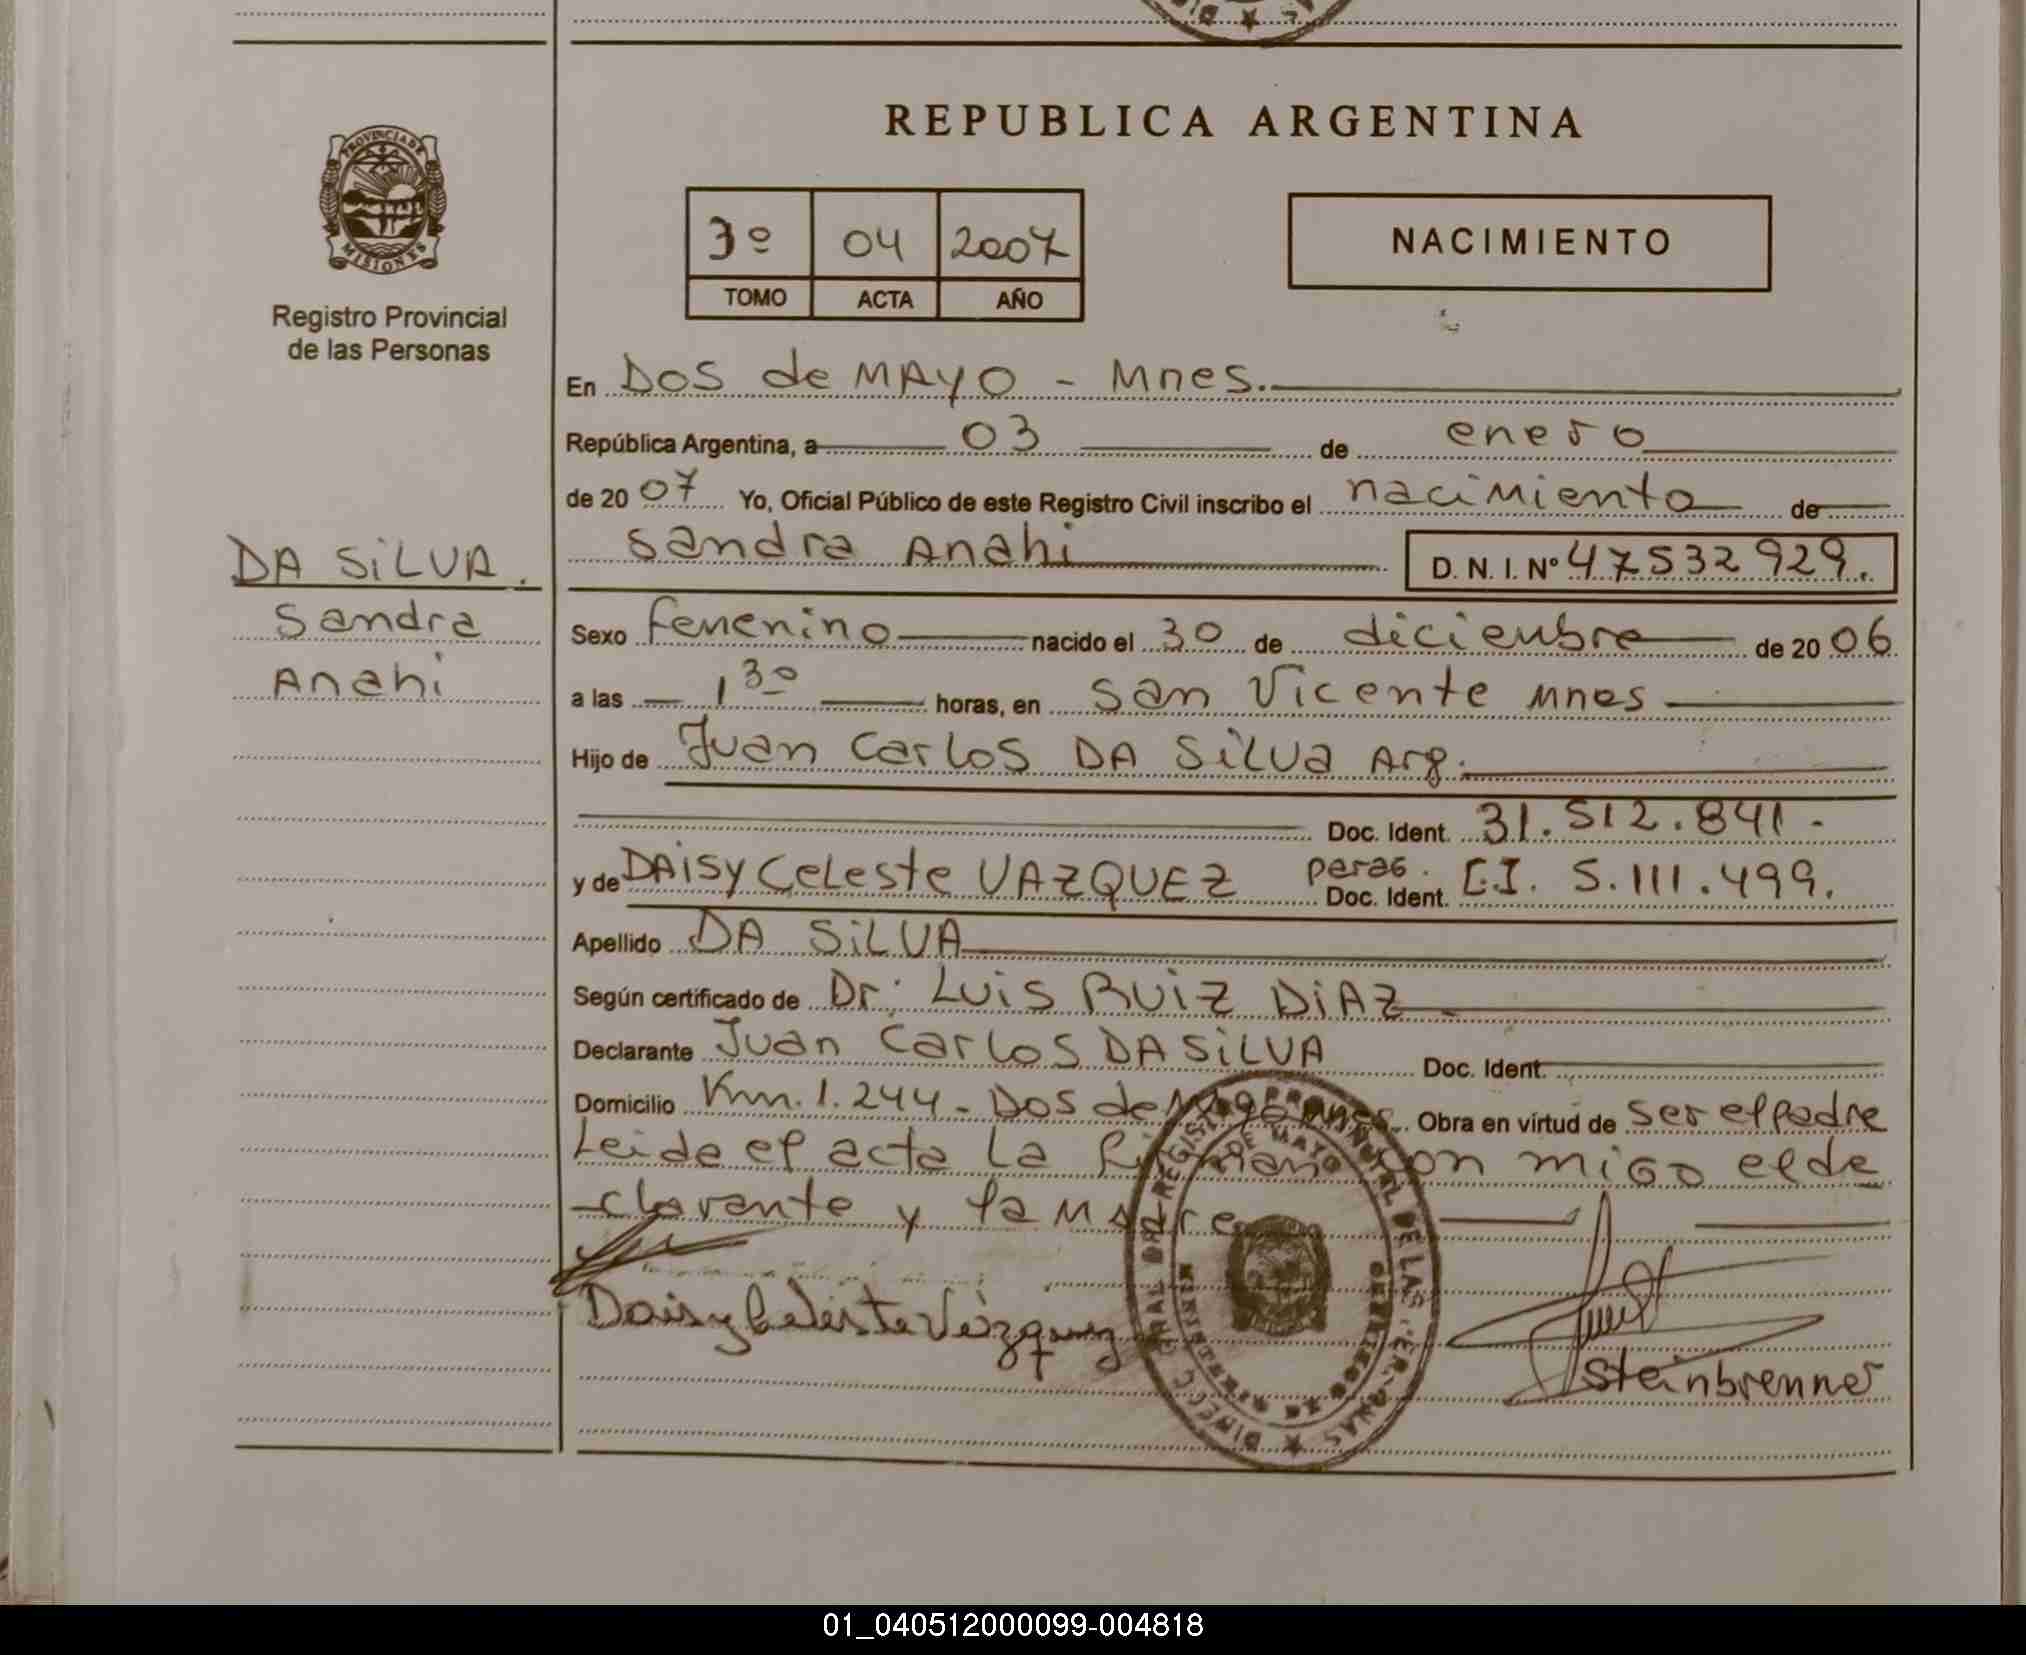 REPUBLICA ARGENTINA
PROVINCIA DE MISIONES
Registro Provincial
de las Personas
3º 04 2007
TOMO ACTA AÑO
NACIMIENTO
En Dos de MAYO - Mnes.
República Argentina, a 03 de enero
de 2007 Yo, Oficial Público de este Registro Civil inscribo el nacimiento de
Sandra Anahi D. N. I. Nº 47532929.
DA SiLVA.
Sandra
Anahi
Sexo femenino nacido el 30 de diciembre de 2006
a las 1 30 horas, en San Vicente Mnes
Hijo de Juan Carlos DA SiLVa Arg.
Doc. Ident. 31.512.841.-
y de DAiSy CeLeste VAZQUEZ Doc. Ident. C.I. 5.111.499.
Apellido DA SiLVA
Según certificado de Dr. Luis RUiZ DiAZ
Declarante Juan Carlos DA SiLVA Doc. Ident.
Domicilio Km. 1.244 - Dos de Mayo Mnes. Obra en virtud de ser el padre
Leida el acta La firman con migo el de
clarante y la Madre
Daisy Celeste Vázquez
Steinbrenner
01_040512000099-004818